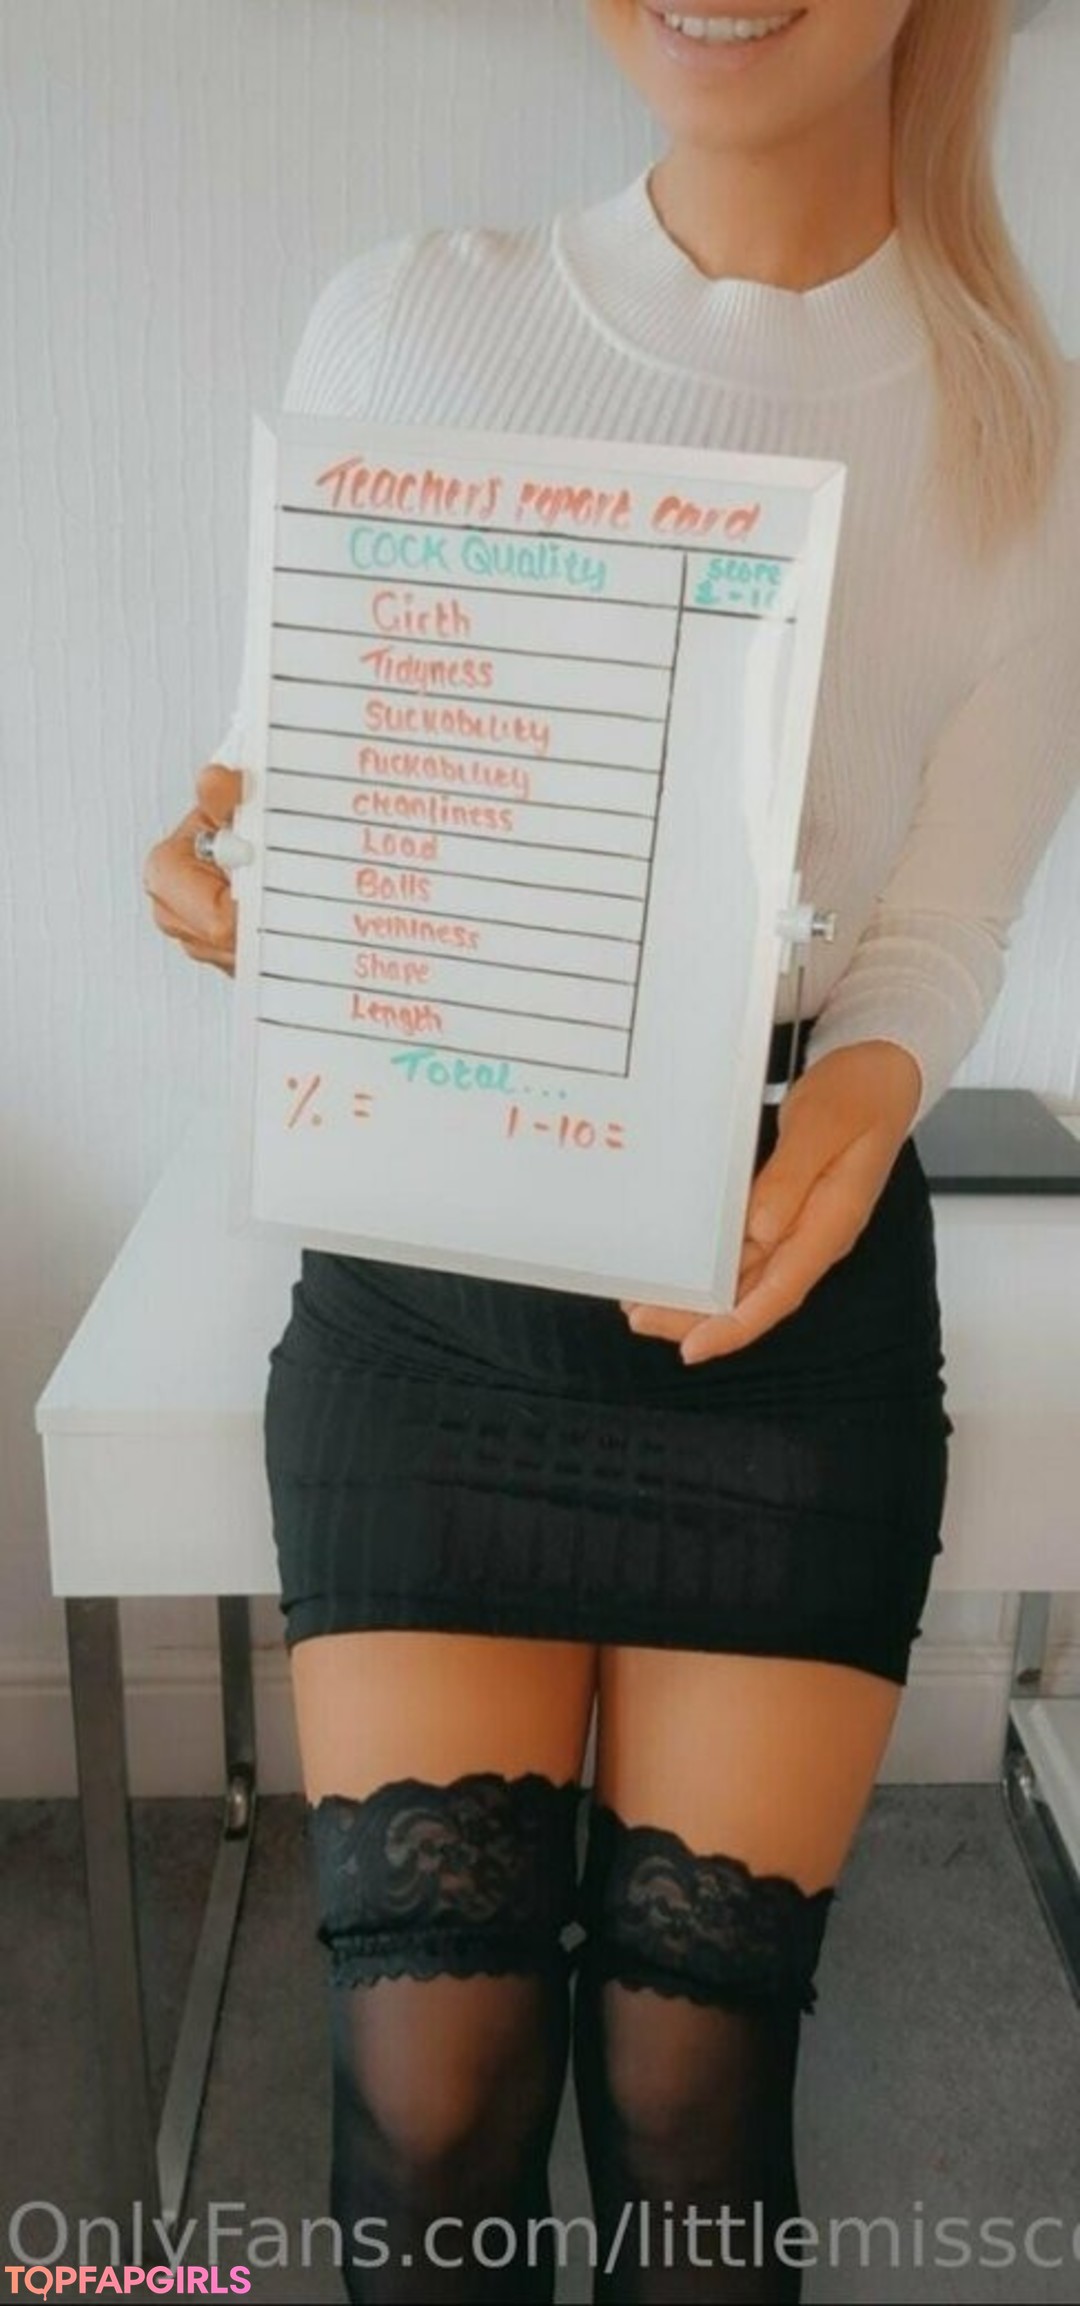 Teachers report card
COCK Quality
Score
1-10
Girth
Tidyness
Suckability
Fuckability
cleanliness
Load
Balls
veininess
Shape
Length
Total...
% =
1-10=
OnlyFans.com/littlemissc
TOPFAPGIRLS